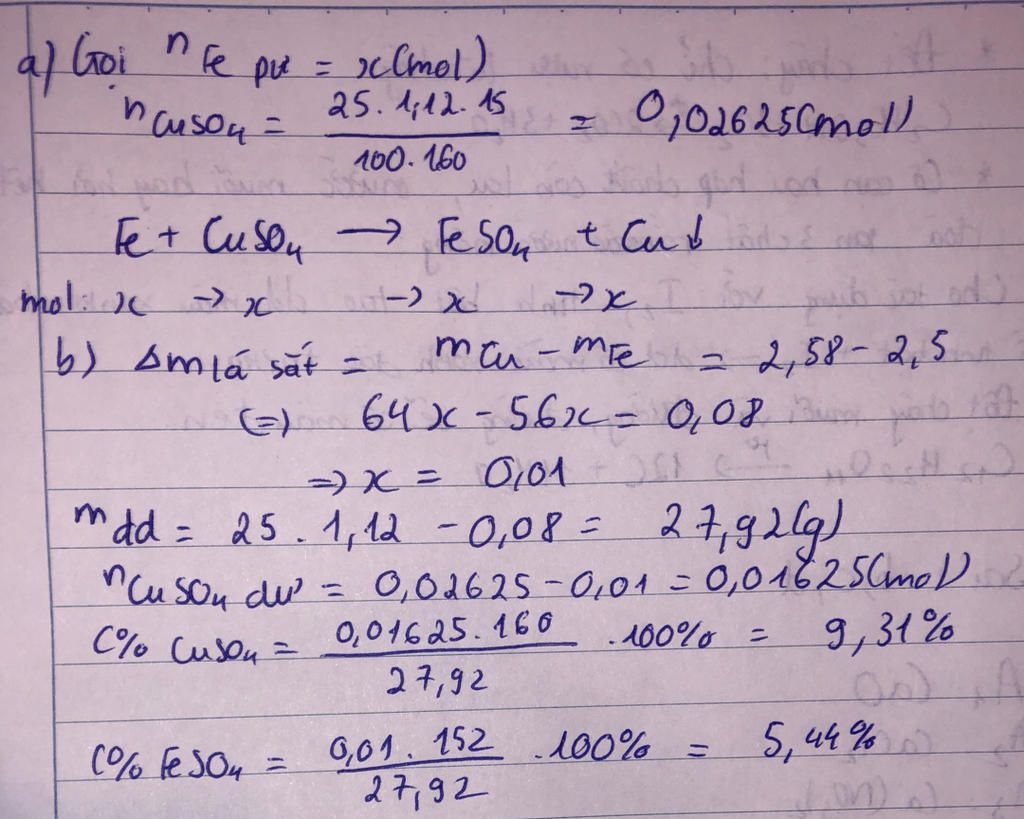 a) Gọi nFe pư = x(mol)
nCuSO4 = 25.1,12.15 / 100.160 = 0,02625(mol)
Fe + CuSO4 → FeSO4 + Cu↓
mol: x → x → x → x
b) Δm lá sắt = mCu - mFe = 2,58 - 2,5
(=) 64x - 56x = 0,08
=> x = 0,01
mdd = 25.1,12 - 0,08 = 27,92(g)
nCuSO4 dư = 0,02625 - 0,01 = 0,01625(mol)
C% CuSO4 = 0,01625.160 / 27,92 .100% = 9,31%
C% FeSO4 = 0,01.152 / 27,92 .100% = 5,44%